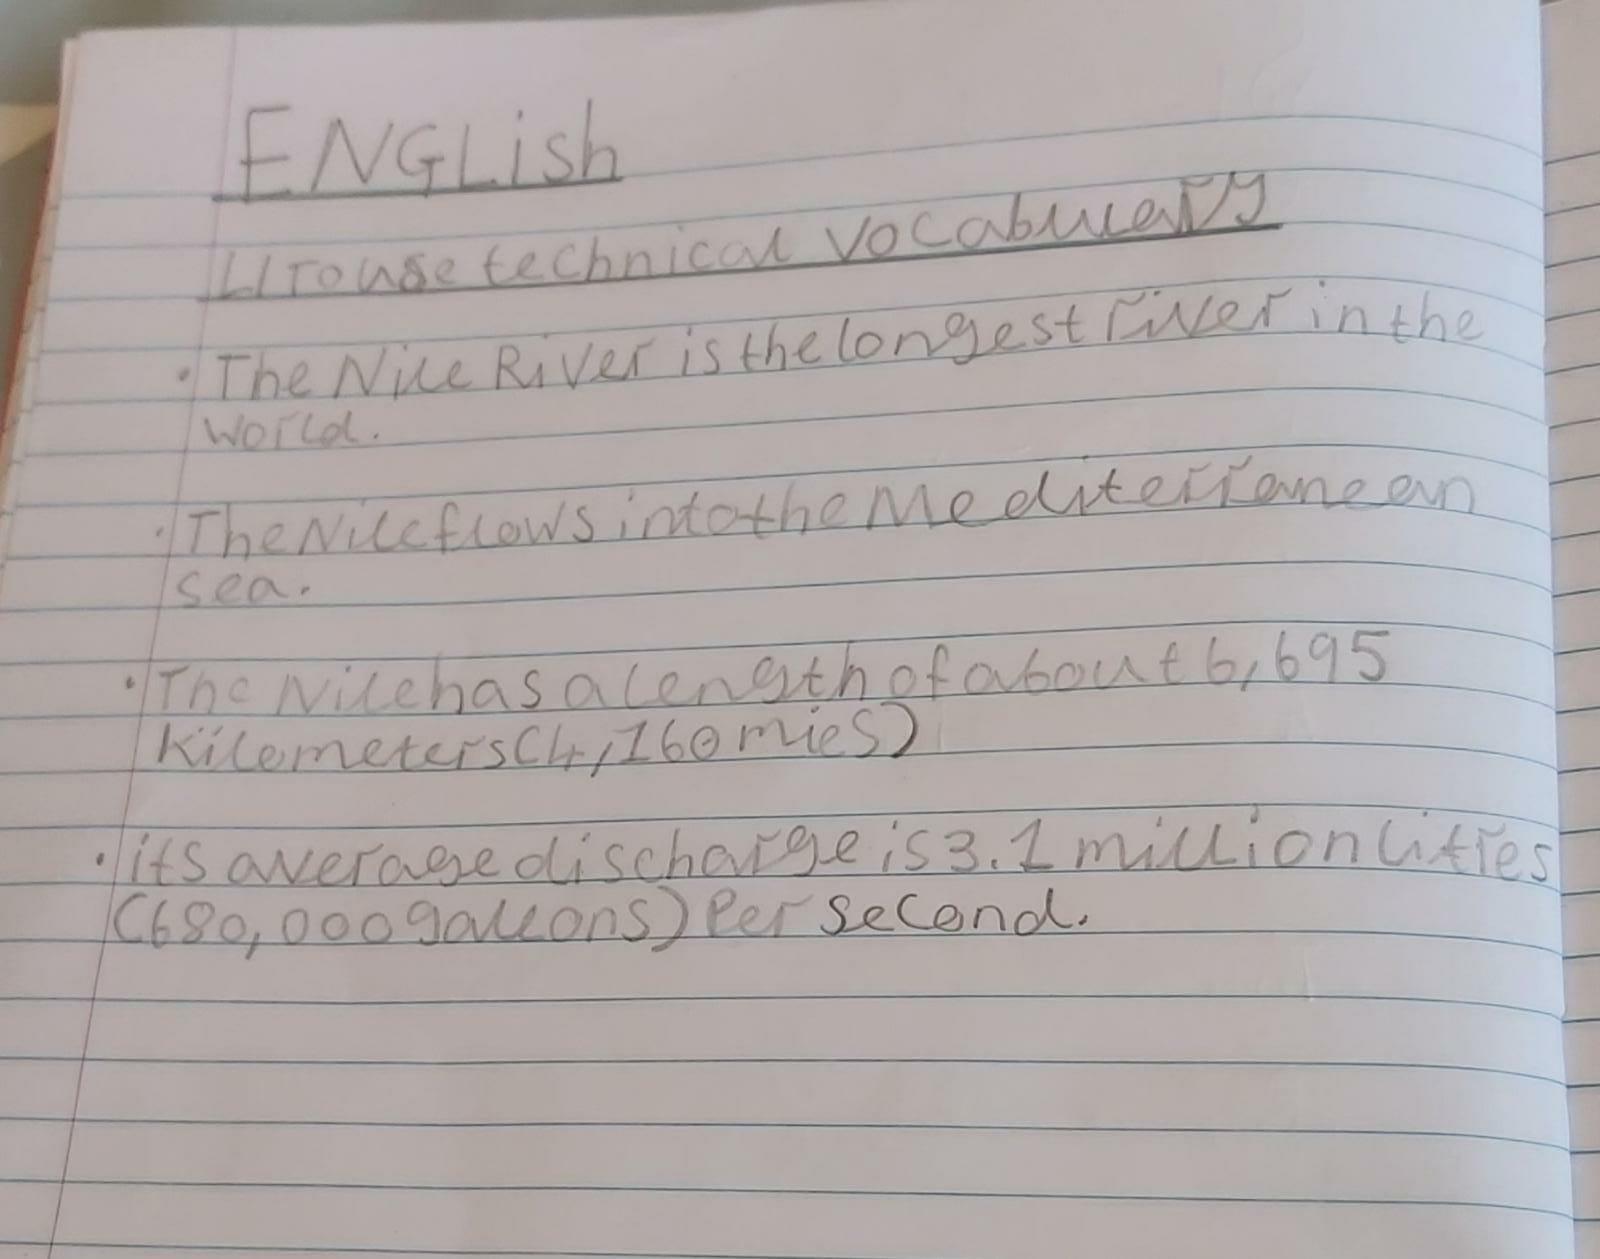 ENGLish
LI To use technical vocabulary
• The Nile River is the longest river in the
world.
• The Nile flows into the Mediterranean
sea.
• The Nile has a length of about 6,695
Kilometers (4,160 mies)
• its average discharge is 3.1 million litres
(680,000 gallons) Per second.